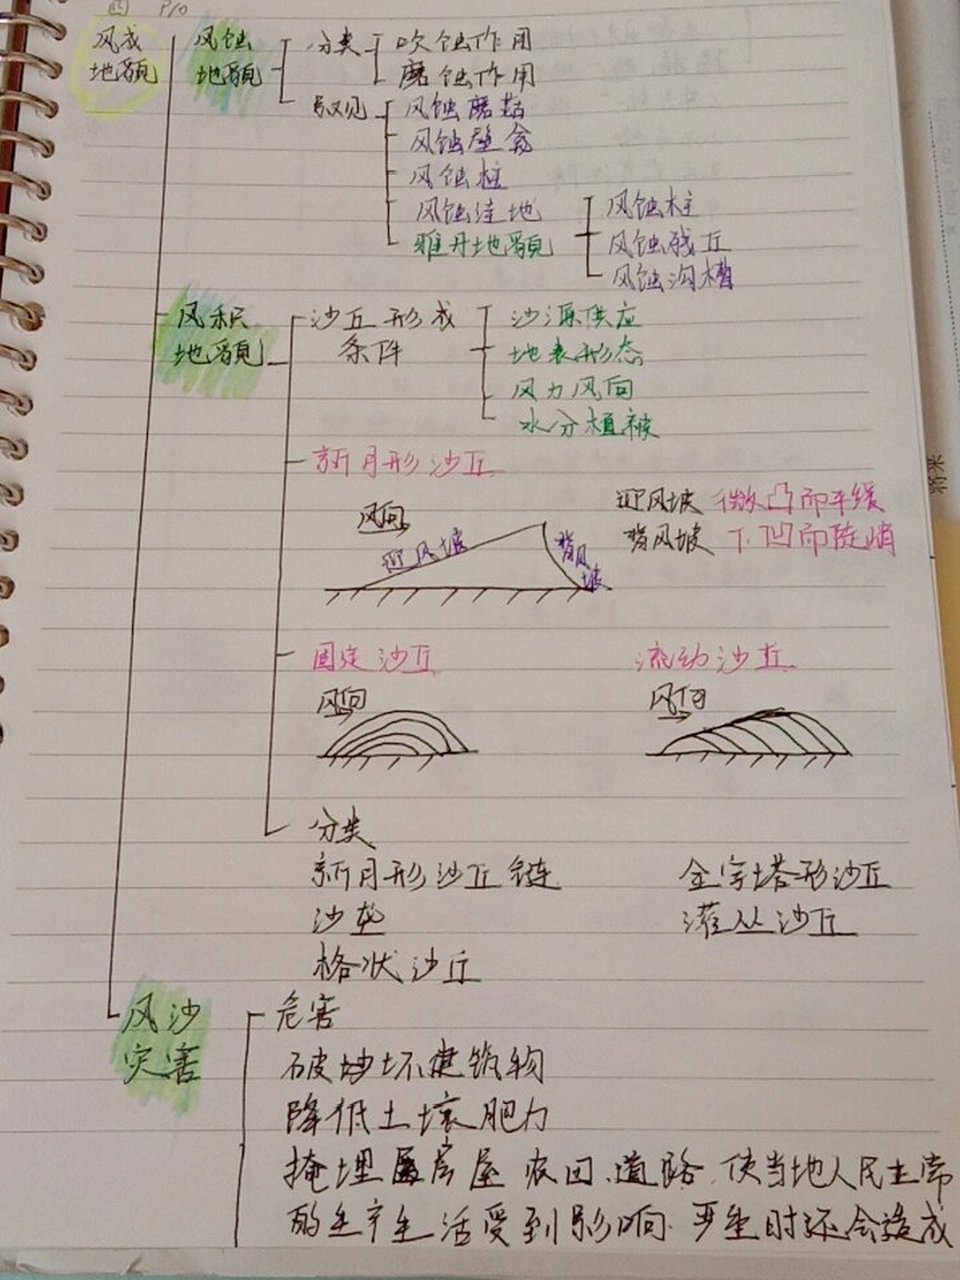 四 P10
风成 风蚀 分类 吹蚀作用
地貌 地貌 磨蚀作用
景观 风蚀蘑菇
风蚀壁龛
风蚀柱
风蚀洼地 风蚀柱
雅丹地貌 风蚀残丘
风蚀沟槽
风积 沙丘形成 沙源供应
地貌 条件 地表形态
风力风向
水分植被
新月形沙丘
迎风坡 微凸而平缓
风向
背风坡 下凹而陡峭
迎风坡 背风坡
固定沙丘 流动沙丘
风向 风向
分类
新月形沙丘链 金字塔形沙丘
沙垄 灌丛沙丘
格状沙丘
风沙 危害
灾害 破坏建筑物
降低土壤肥力
掩埋房屋 农田、道路、使当地人民正常
的生产生活受到影响 严重时还会造成